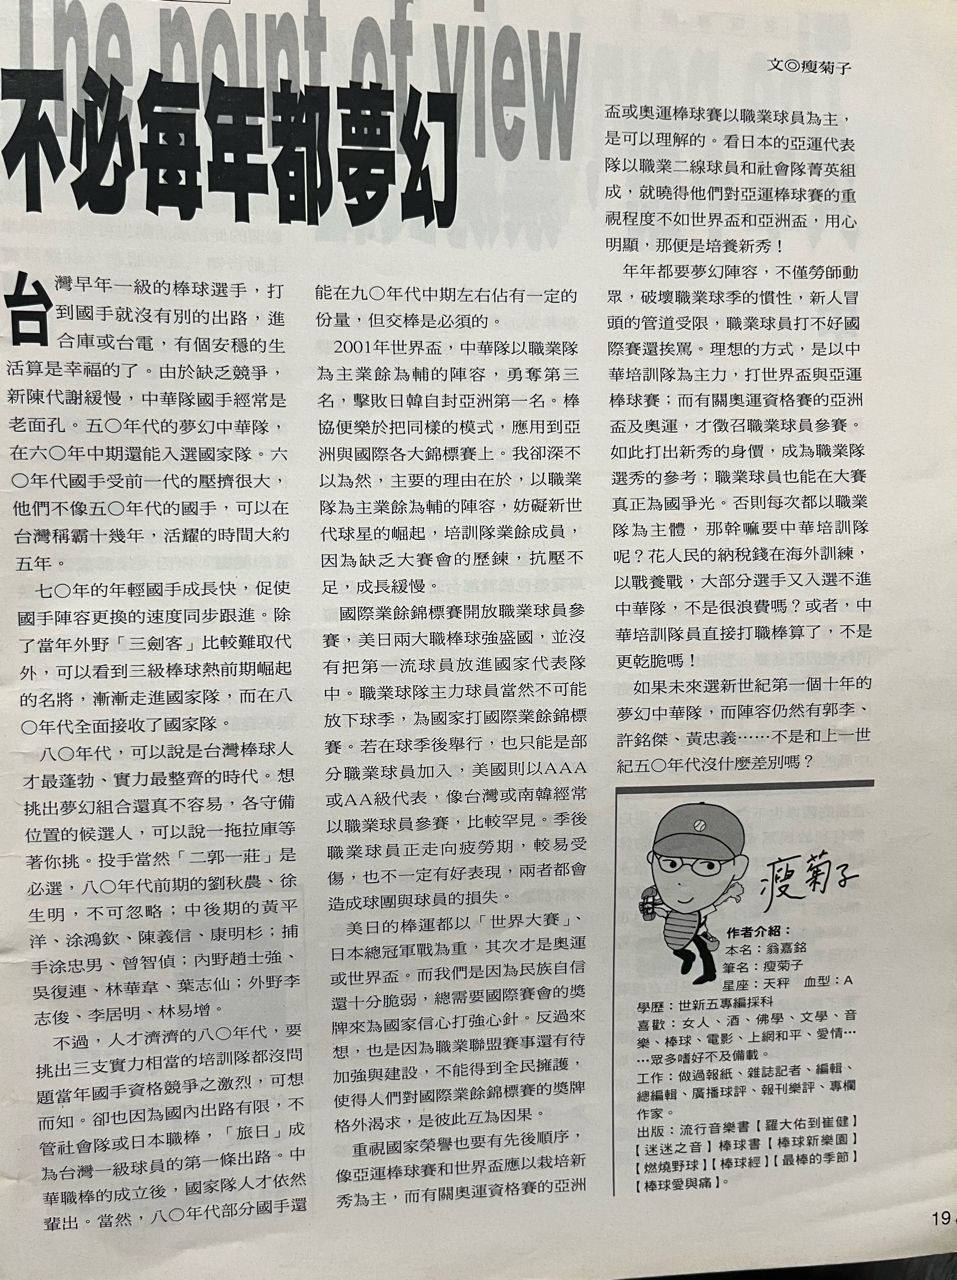 The point of view
不必每年都夢幻
文◎瘦菊子
台灣早年一級的棒球選手，打
到國手就沒有別的出路，進
合庫或台電，有個安穩的生
活算是幸福的了。由於缺乏競爭，
新陳代謝緩慢，中華隊國手經常是
老面孔。五〇年代的夢幻中華隊，
在六〇年中期還能入選國家隊。六
〇年代國手受前一代的壓擠很大，
他們不像五〇年代的國手，可以在
台灣稱霸十幾年，活耀的時間大約
五年。
七〇年的年輕國手成長快，促使
國手陣容更換的速度同步跟進。除
了當年外野「三劍客」比較難取代
外，可以看到三級棒球熱前期崛起
的名將，漸漸走進國家隊，而在八
〇年代全面接收了國家隊。
八〇年代，可以說是台灣棒球人
才最蓬勃、實力最整齊的時代。想
挑出夢幻組合還真不容易，各守備
位置的候選人，可以說一拖拉庫等
著你挑。投手當然「二郭一莊」是
必選，八〇年代前期的劉秋農、徐
生明，不可忽略；中後期的黃平
洋、涂鴻欽、陳義信、康明杉；捕
手涂忠男、曾智偵；內野趙士強、
吳復連、林華韋、葉志仙；外野李
志俊、李居明、林易增。
不過，人才濟濟的八〇年代，要
挑出三支實力相當的培訓隊都沒問
題當年國手資格競爭之激烈，可想
而知。卻也因為國內出路有限，不
管社會隊或日本職棒，「旅日」成
為台灣一級球員的第一條出路。中
華職棒的成立後，國家隊人才依然
輩出。當然，八〇年代部分國手還
能在九〇年代中期左右佔有一定的
份量，但交棒是必須的。
2001年世界盃，中華隊以職業隊
為主業餘為輔的陣容，勇奪第三
名，擊敗日韓自封亞洲第一名。棒
協便樂於把同樣的模式，應用到亞
洲與國際各大錦標賽上。我卻深不
以為然，主要的理由在於，以職業
隊為主業餘為輔的陣容，妨礙新世
代球星的崛起，培訓隊業餘成員，
因為缺乏大賽會的歷鍊，抗壓不
足，成長緩慢。
國際業餘錦標賽開放職業球員參
賽，美日兩大職棒球強盛國，並沒
有把第一流球員放進國家代表隊
中。職業球隊主力球員當然不可能
放下球季，為國家打國際業餘錦標
賽。若在球季後舉行，也只能是部
分職業球員加入，美國則以AAA
或AA級代表，像台灣或南韓經常
以職業球員參賽，比較罕見。季後
職業球員正走向疲勞期，較易受
傷，也不一定有好表現，兩者都會
造成球團與球員的損失。
美日的棒運都以「世界大賽」、
日本總冠軍戰為重，其次才是奧運
或世界盃。而我們是因為民族自信
還十分脆弱，總需要國際賽會的獎
牌來為國家信心打強心針。反過來
想，也是因為職業聯盟賽事還有待
加強與建設，不能得到全民擁護，
使得人們對國際業餘錦標賽的獎牌
格外渴求，是彼此互為因果。
重視國家榮譽也要有先後順序，
像亞運棒球賽和世界盃應以栽培新
秀為主，而有關奧運資格賽的亞洲
盃或奧運棒球賽以職業球員為主，
是可以理解的。看日本的亞運代表
隊以職業二線球員和社會隊菁英組
成，就曉得他們對亞運棒球賽的重
視程度不如世界盃和亞洲盃，用心
明顯，那便是培養新秀！
年年都要夢幻陣容，不僅勞師動
眾，破壞職業球季的慣性，新人冒
頭的管道受限，職業球員打不好國
際賽還挨罵。理想的方式，是以中
華培訓隊為主力，打世界盃與亞運
棒球賽；而有關奧運資格賽的亞洲
盃及奧運，才徵召職業球員參賽。
如此打出新秀的身價，成為職業隊
選秀的參考；職業球員也能在大賽
真正為國爭光。否則每次都以職業
隊為主體，那幹嘛要中華培訓隊
呢？花人民的納稅錢在海外訓練，
以戰養戰，大部分選手又入選不進
中華隊，不是很浪費嗎？或者，中
華培訓隊員直接打職棒算了，不是
更乾脆嗎！
如果未來選新世紀第一個十年的
夢幻中華隊，而陣容仍然有郭李、
許銘傑、黃忠義……不是和上一世
紀五〇年代沒什麼差別嗎？
瘦菊子
作者介紹：
本名：翁嘉銘
筆名：瘦菊子
星座：天秤　血型：A
學歷：世新五專編採科
喜歡：女人、酒、佛學、文學、音
樂、棒球、電影、上網和平、愛情…
…眾多嗜好不及備載。
工作：做過報紙、雜誌記者、編輯、
總編輯、廣播球評、報刊樂評、專欄
作家。
出版：流行音樂書【羅大佑到崔健】
【迷迷之音】棒球書【棒球新樂園】
【燃燒野球】【棒球經】【最棒的季節】
【棒球愛與痛】。
19